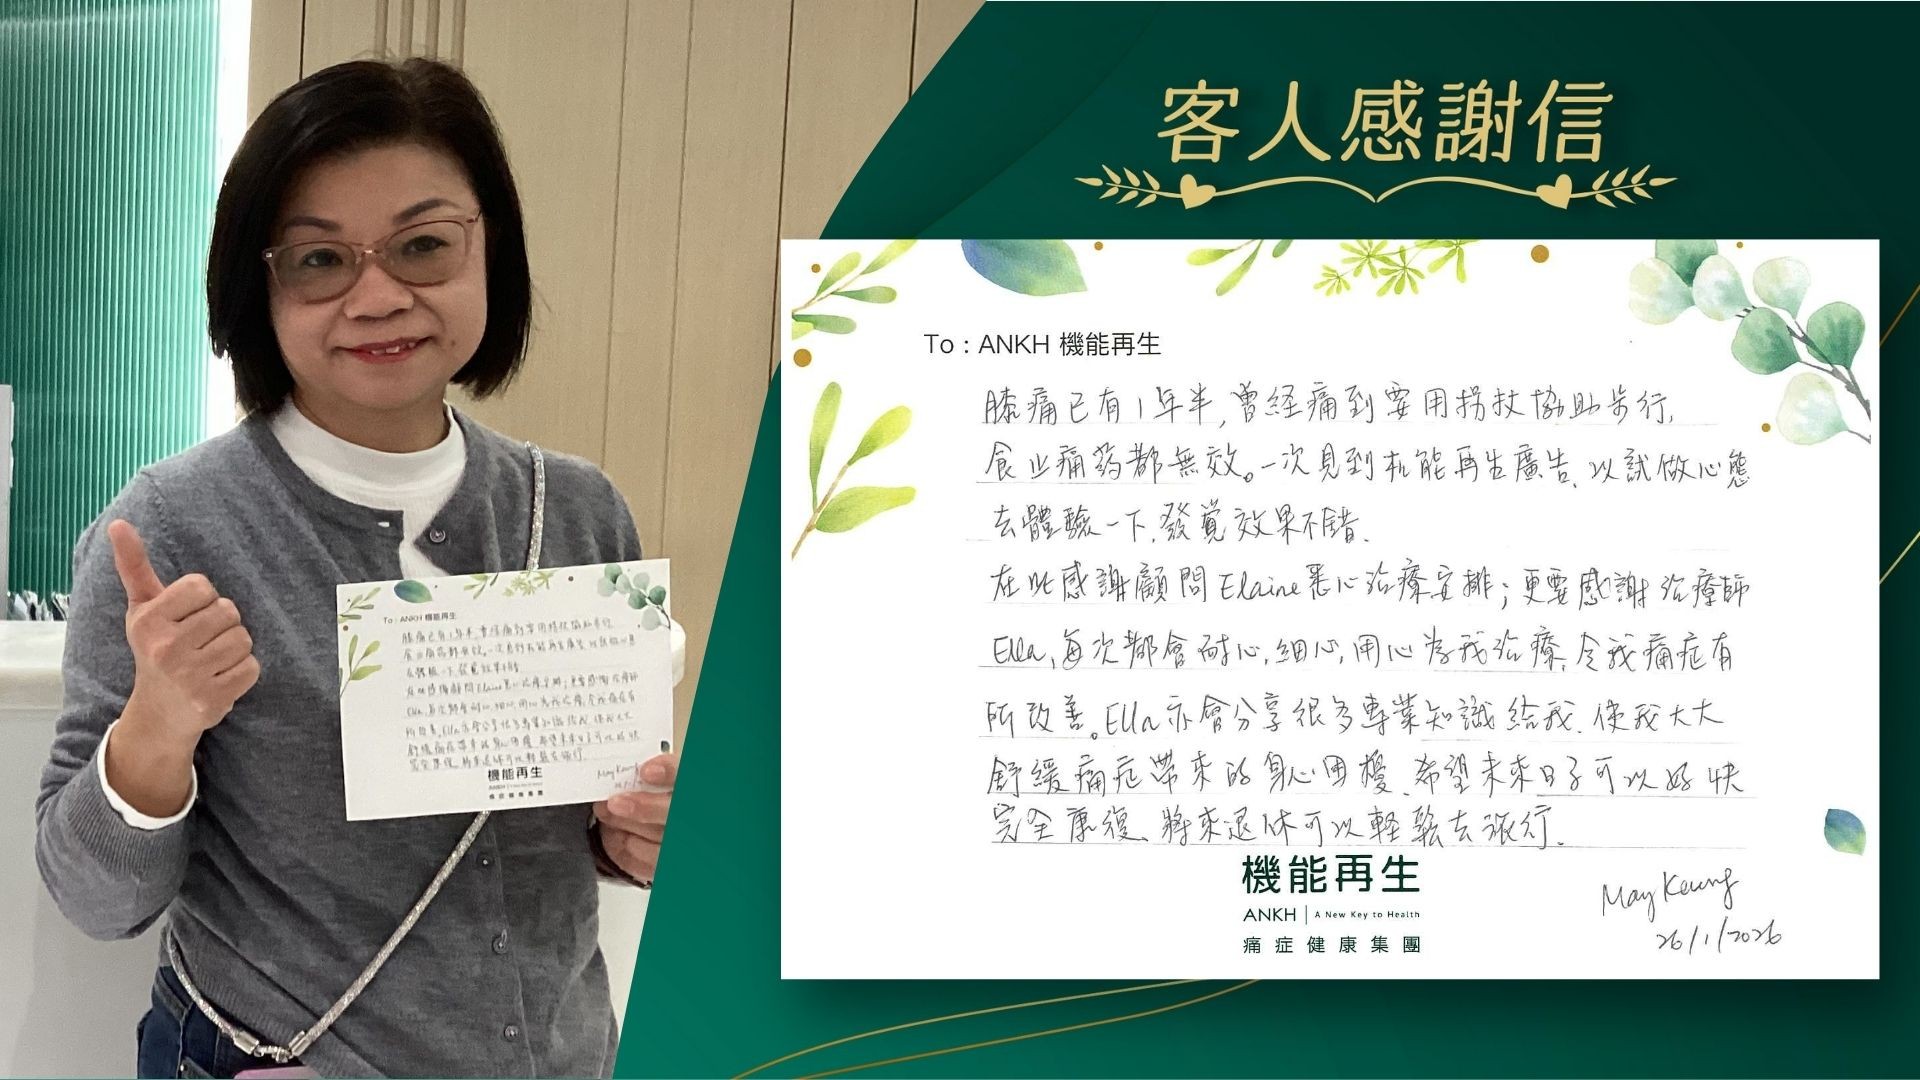 客人感謝信
To : ANKH 機能再生
膝痛已有1年半,曾経痛到要用拐杖協助步行,
食止痛药都無效。一次見到机能再生廣告,以試做心態
去體驗一下,發覚效果不錯.
在此感謝顧問Elaine悉心治療安排;更要感謝治療師
Ella,每次都會耐心,細心,用心為我治療,令我痛症有
所改善。Ella亦會分享很多專業知識給我,使我大大
舒緩痛症帶來的身心困擾,希望未來日子可以好快
完全康復,將來退休可以輕鬆去旅行.
機能再生
ANKH | A New Key to Health
痛症健康集團
May Keung
26/1/2026